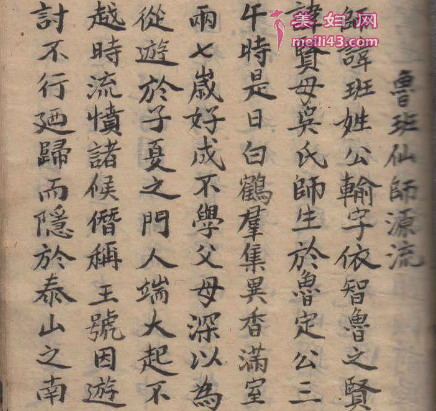 魯班仙師源流
師諱班姓公輸字依智魯之賢
諱賢母吳氏師生於魯定公三
午時是日白鶴羣集異香滿室
兩七歲好成不學父母深以為
從遊於子夏之門人端大起不
越時流憤諸候僭稱王號因遊
討不行廼歸而隱於泰山之南
美妇网
meili43.com